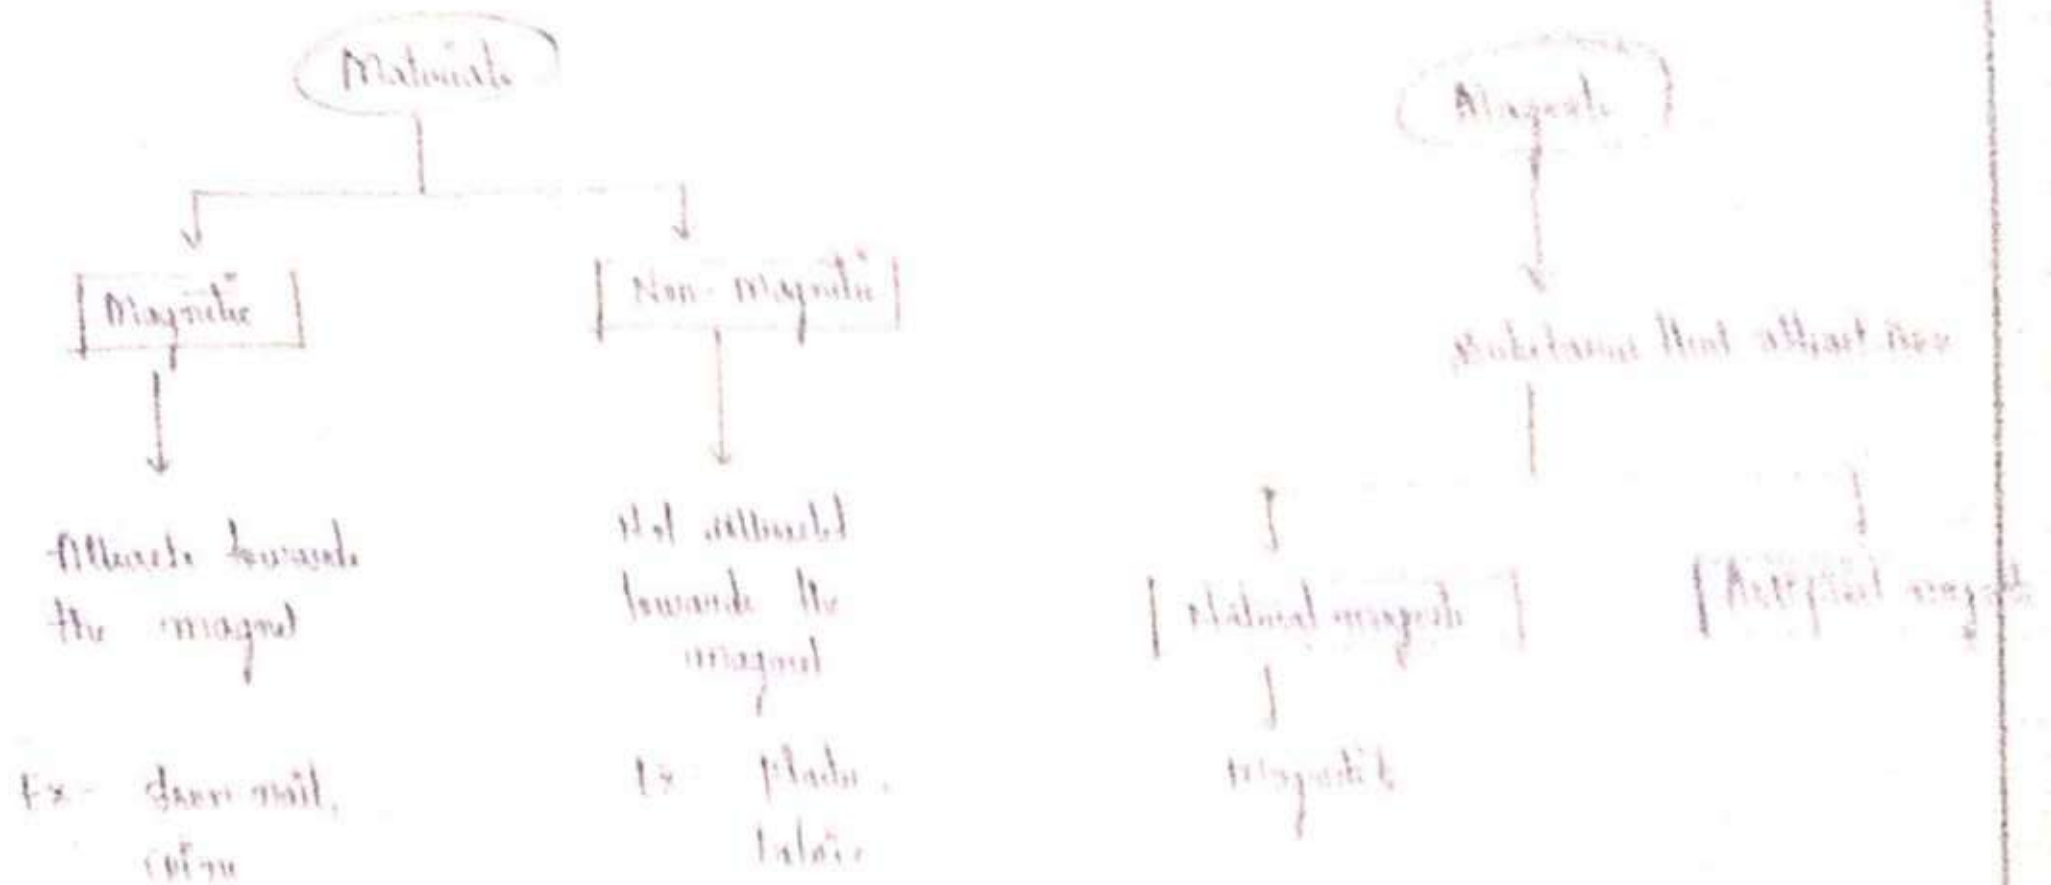 Materials
Magnetic
Non-Magnetic
Attracts towards
the magnet
Not attracted
towards the
magnet
Ex- Iron nail,
Ex- Plastic,
fabric
Magnets
Substances that attract iron
Natural magnets
Artificial magnets
Magnetite